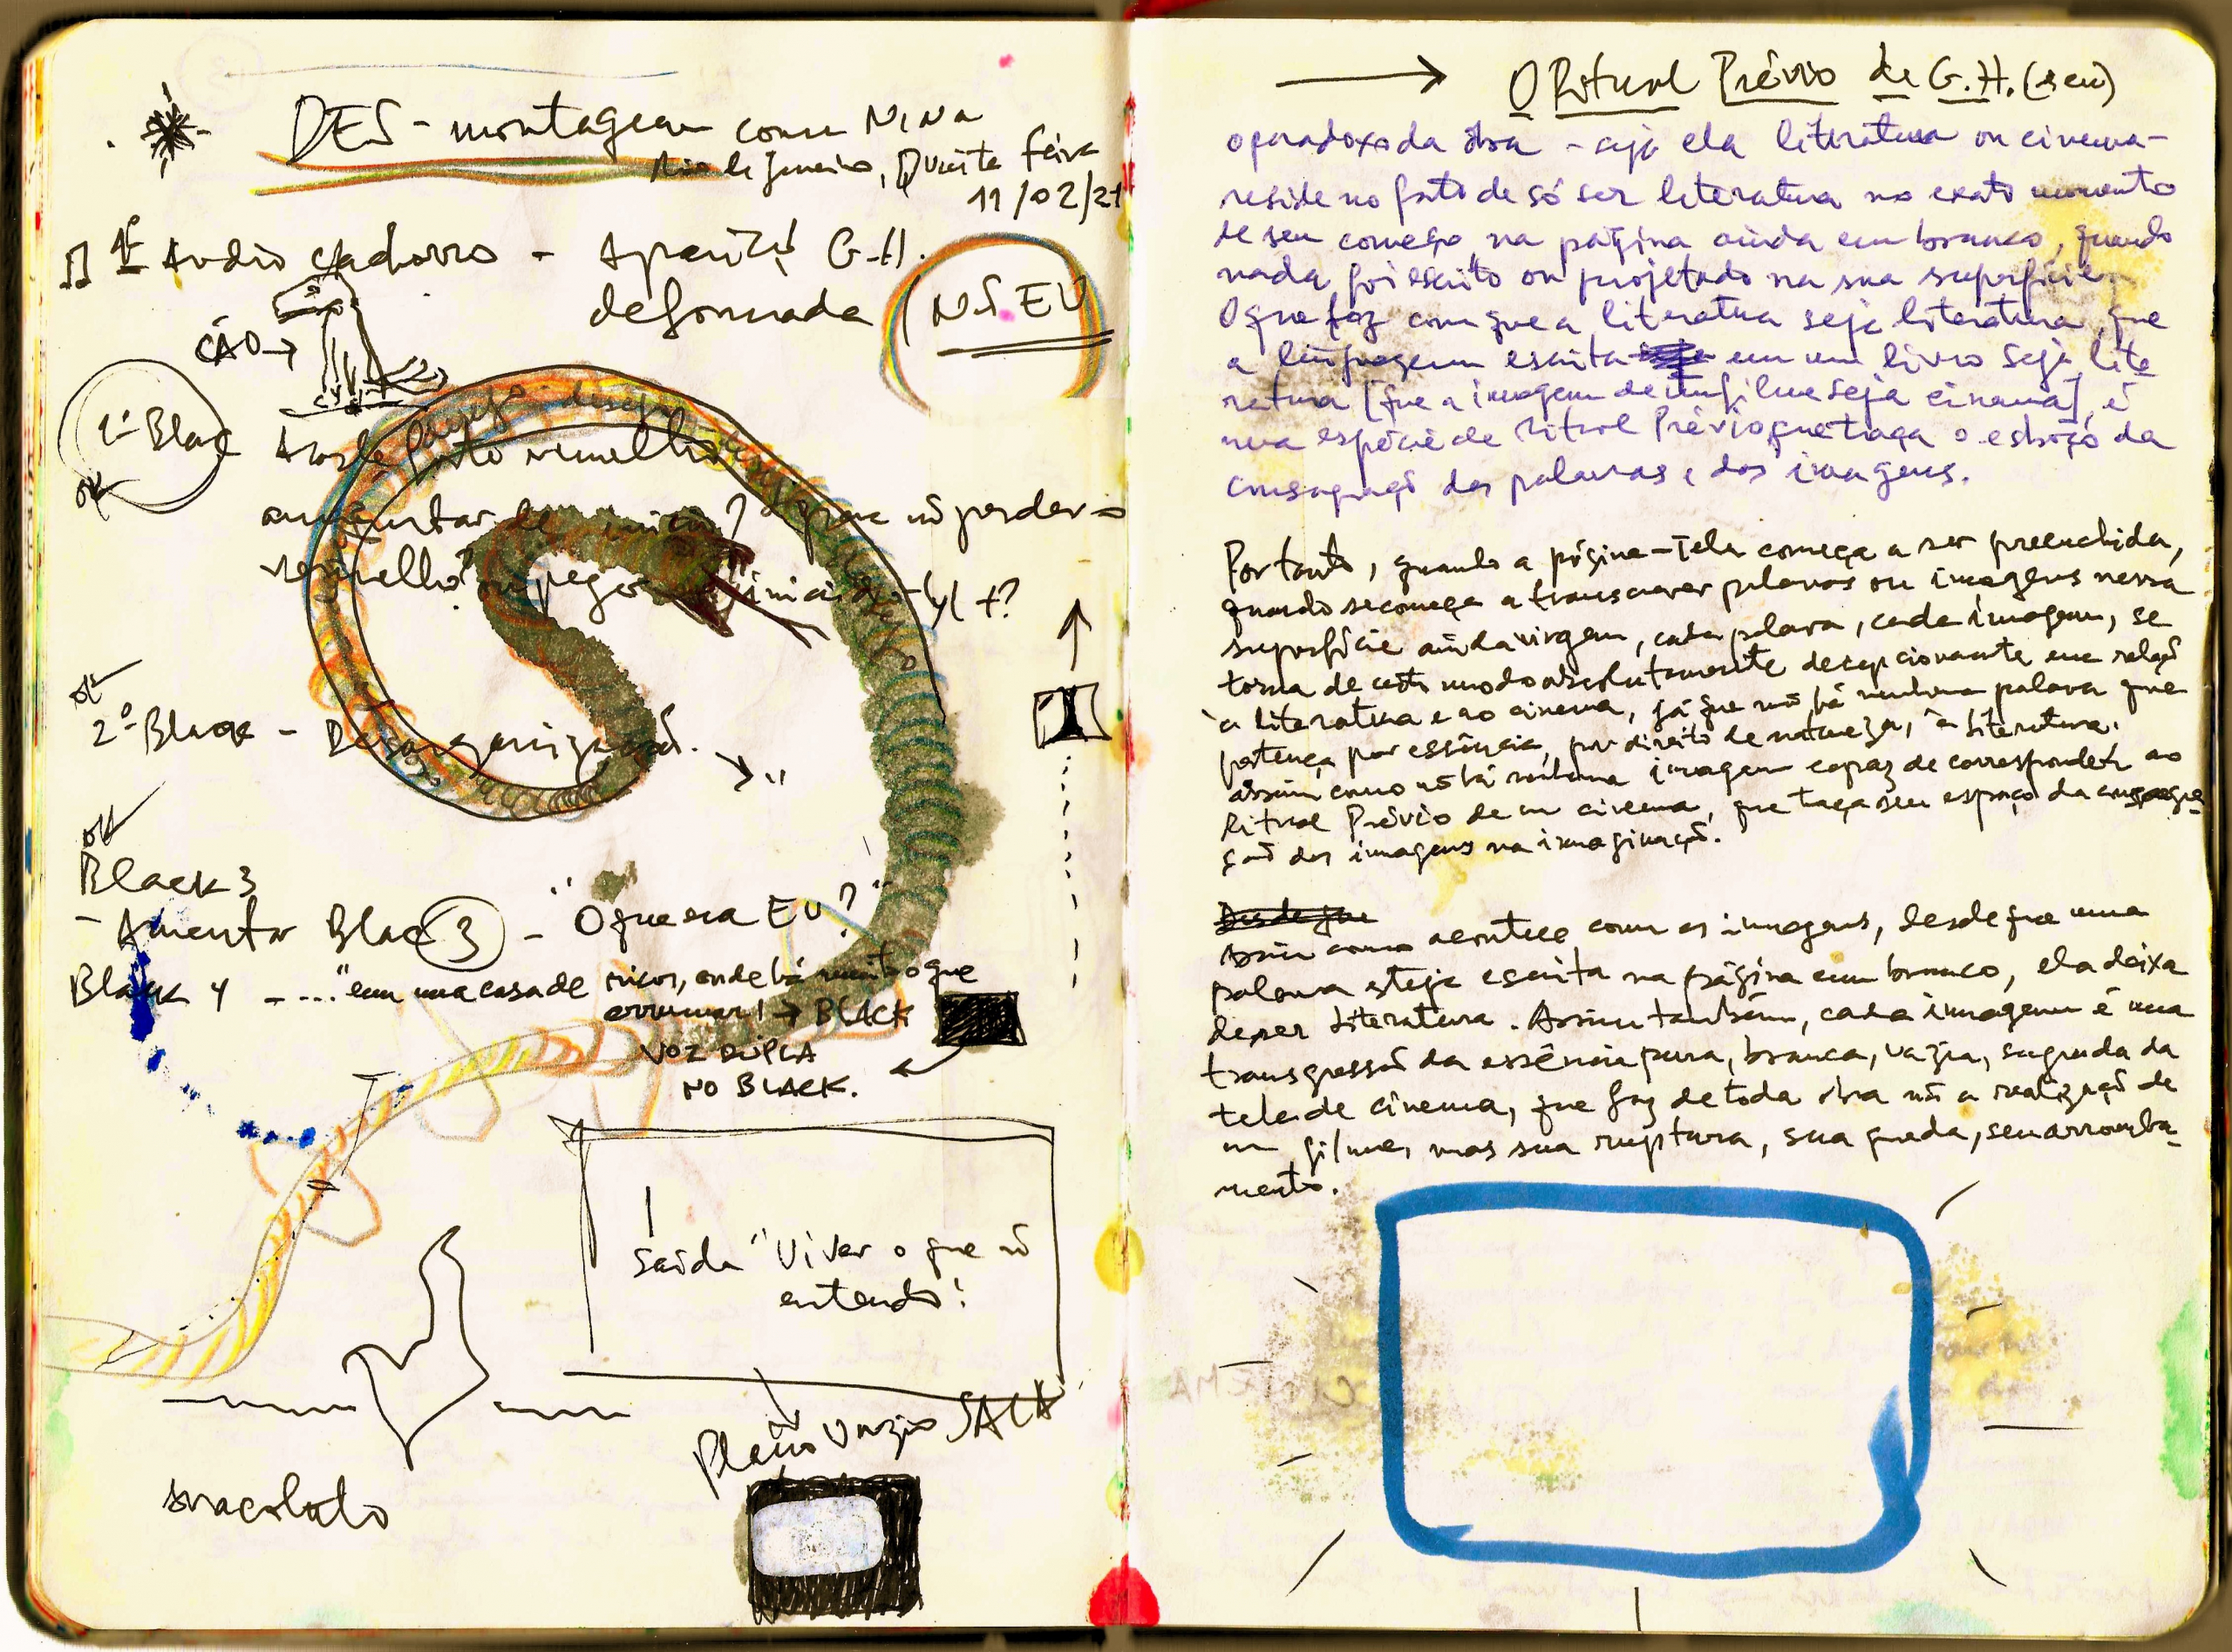 DES-montagem com NINA
Rio de Janeiro, Quinta feira
11/02/21
1º Audio cachorro - Aparição G.H.
deformada (NÃO EU)
CÃO →
1º Black
ok
vermelho
aumentar de início? para não perder o
vermelho? ou pegar início
ok
2º Black - Desorganização.
ok
Black 3
- Aumentar Black 3 - "O que era EU?"
Black 4 - ... "em uma casa de ricos, onde há muito o que
arrumar! → BLACK
VOZ DUPLA
NO BLACK.
saída "Viver o que não
entendo!
Plano vazio SALA
→ O Ritual Prévio de G.H. (seu)
o paradoxo da obra - seja ela literatura ou cinema -
reside no fato de só ser literatura no exato momento
de seu começo, na página ainda em branco, quando
nada foi escrito ou projetado na sua superfície.
O que faz com que a literatura seja literatura, que
a linguagem escrita em um livro seja lite
ratura [que a imagem de um filme seja cinema], é
uma espécie de Ritual Prévio que traça o esboço da
consagração das palavras e das imagens.
Portanto, quando a página-Tela começa a ser preenchida,
quando se começa a transcrever palavras ou imagens nessa
superfície ainda virgem, cada palavra, cada imagem, se
torna de certo modo absolutamente decepcionante em relação
à literatura e ao cinema, já que não há nenhuma palavra que
pertença por essência, por direito de natureza, à literatura.
assim como não há nenhuma imagem capaz de corresponder ao
Ritual Prévio de um cinema, que traça seu espaço da consagra-
ção das imagens na imaginação.
Desde que
Assim como acontece com as imagens, desde que uma
palavra esteja escrita na página em branco, ela deixa
de ser Literatura. Assim também, cada imagem é uma
transgressão da essência pura, branca, vazia, sagrada da
tela de cinema, que faz de toda obra não a realização de
um filme, mas sua ruptura, sua queda, seu arromba-
mento.